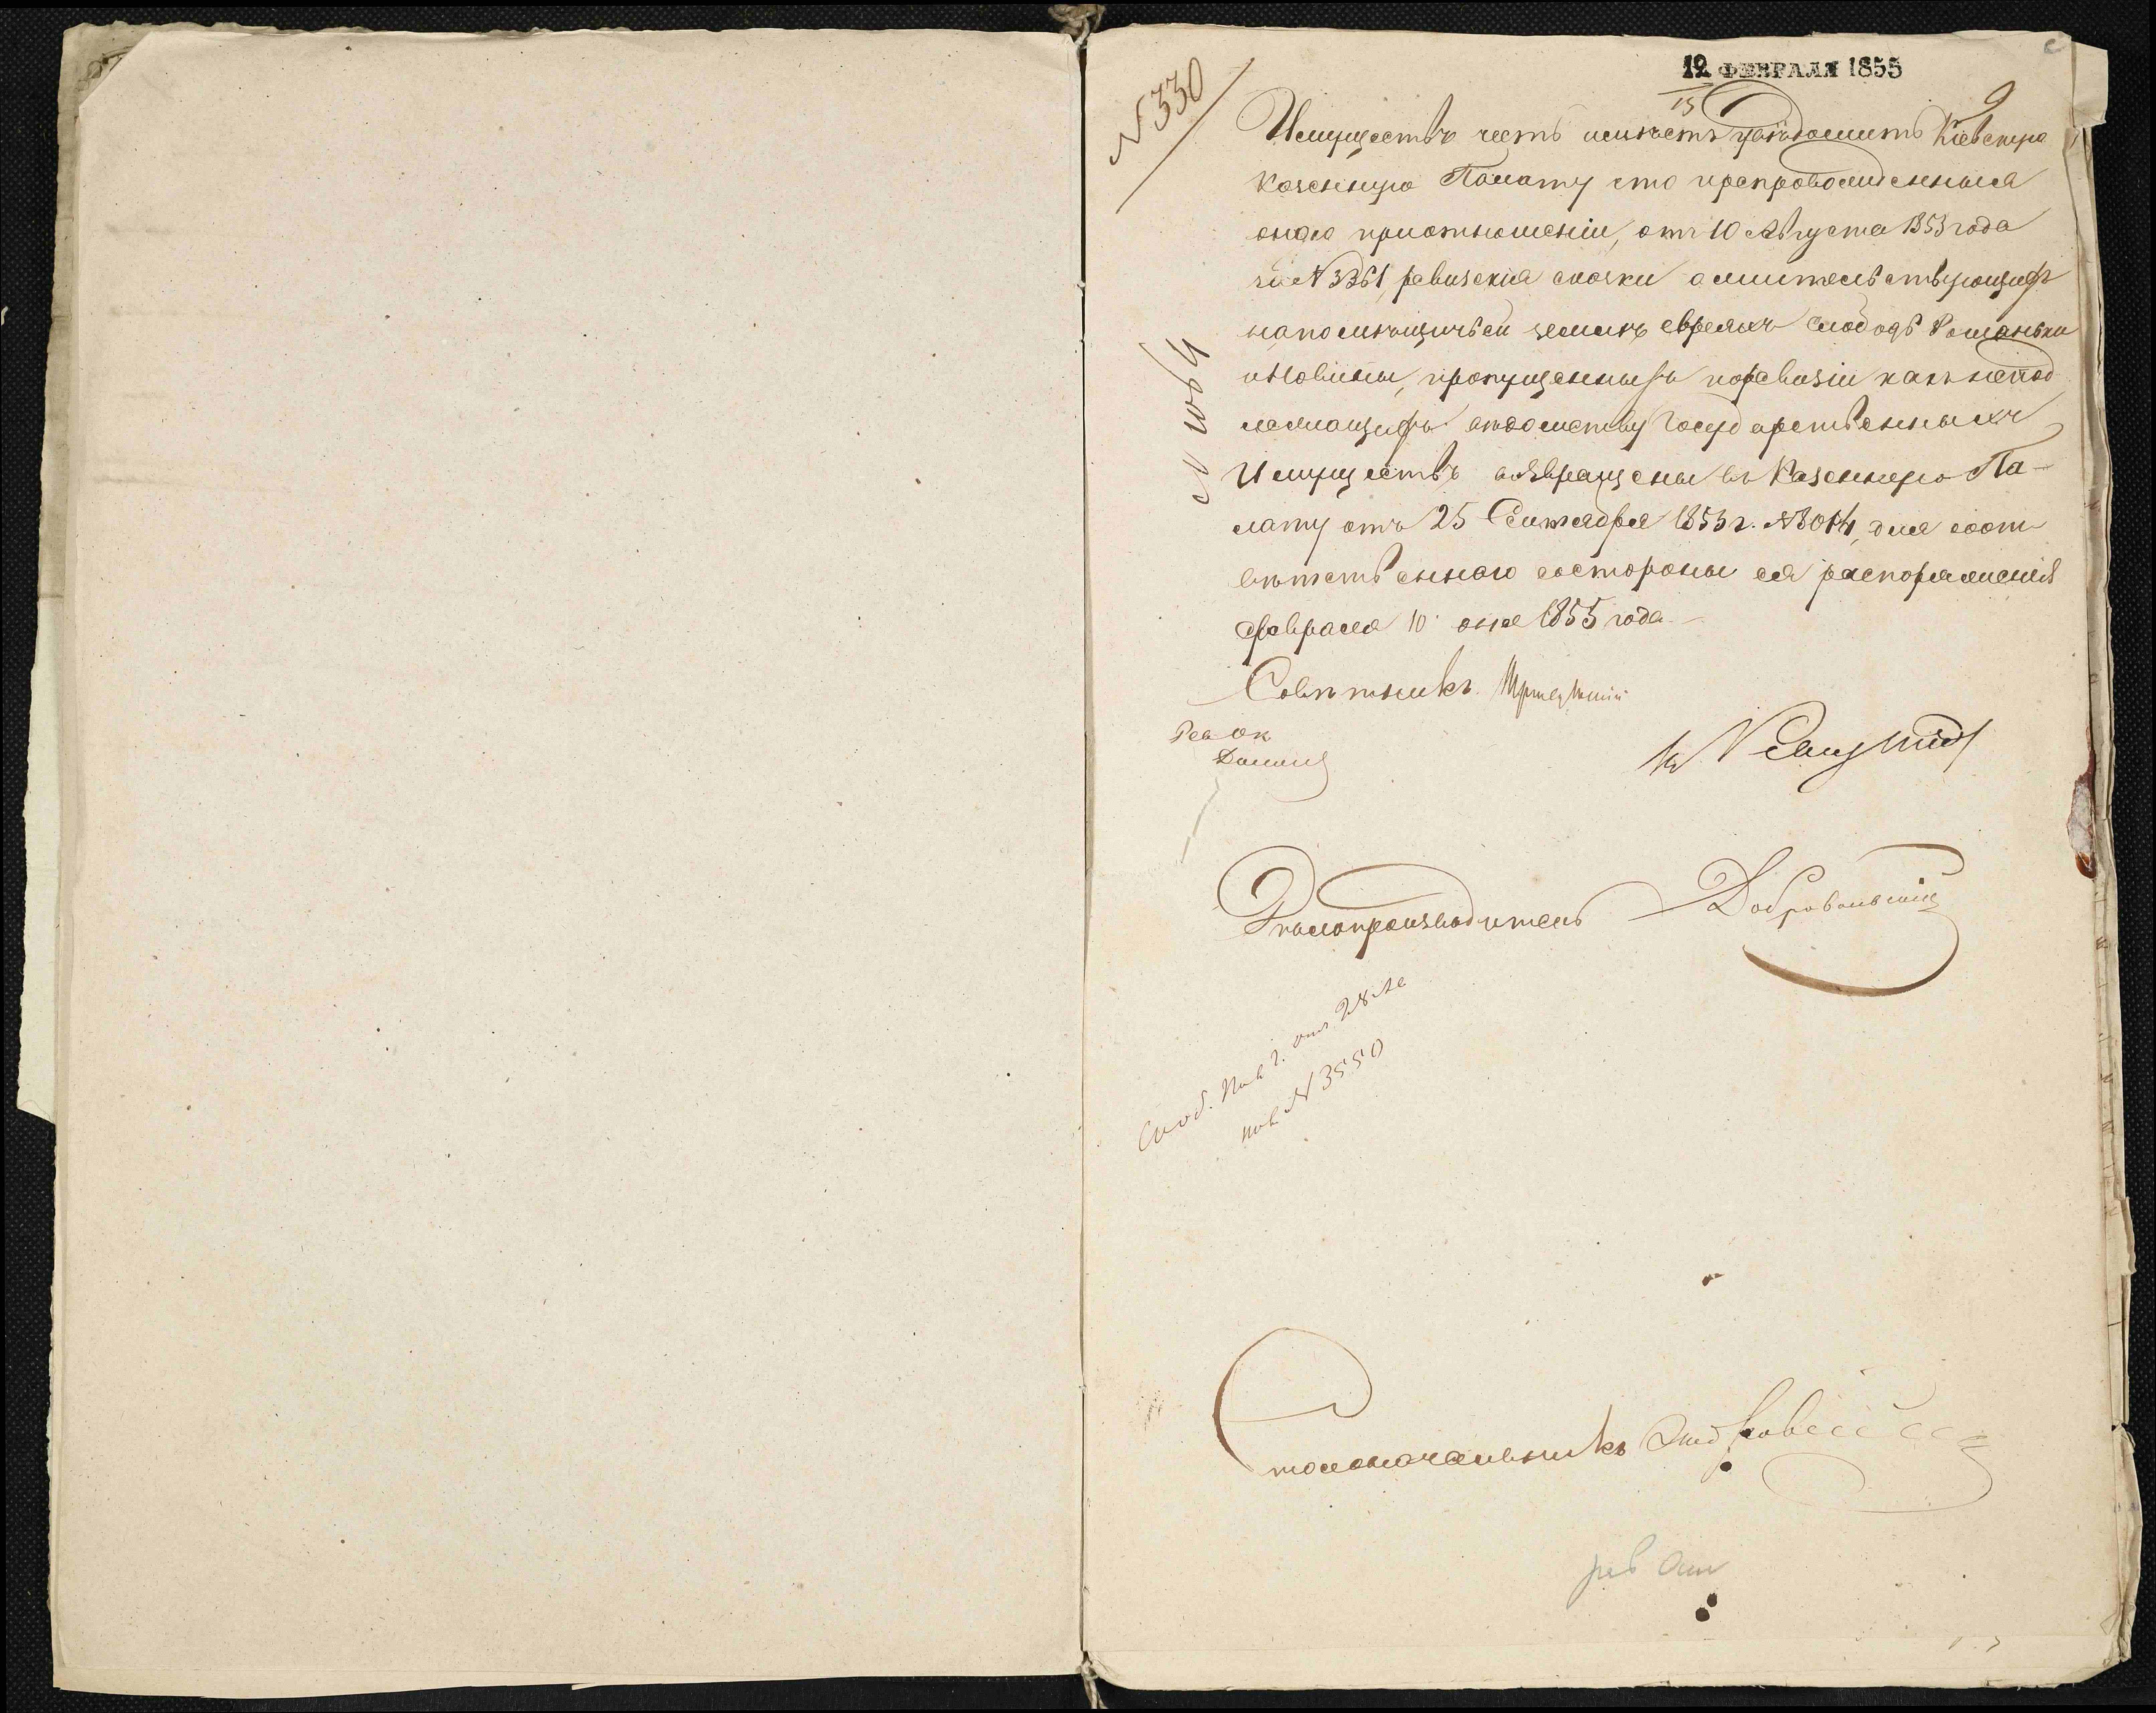 12 ФЕВРАЛЯ 1855
15
9
№ 330
Имуществъ честь имѣетъ увѣдомить Кіевскую
Казенную Палату что препровожденныя
оною приотношеніи, отъ 10 Августа 1853 года
за № 3361, ревизскія сказки о жительствующихъ
напомѣщичьей землѣ евреяхъ слободъ Романьки
и Новины, пропущенныхъ поревизіи какъ непод
лежащихъ вѣдомству Государственныхъ
Имуществъ возвращены въ Казенную Па-
лату отъ 25 Сентября 1853 г. № 8014, для соот
вѣтственнаго состороны ея распоряженія
Февраля 10 дня 1855 года.
Совѣтникъ
Дѣлопроизводитель Добровольскій
Сооб. отъ 28
№ 3550
Столоначальникъ
рев